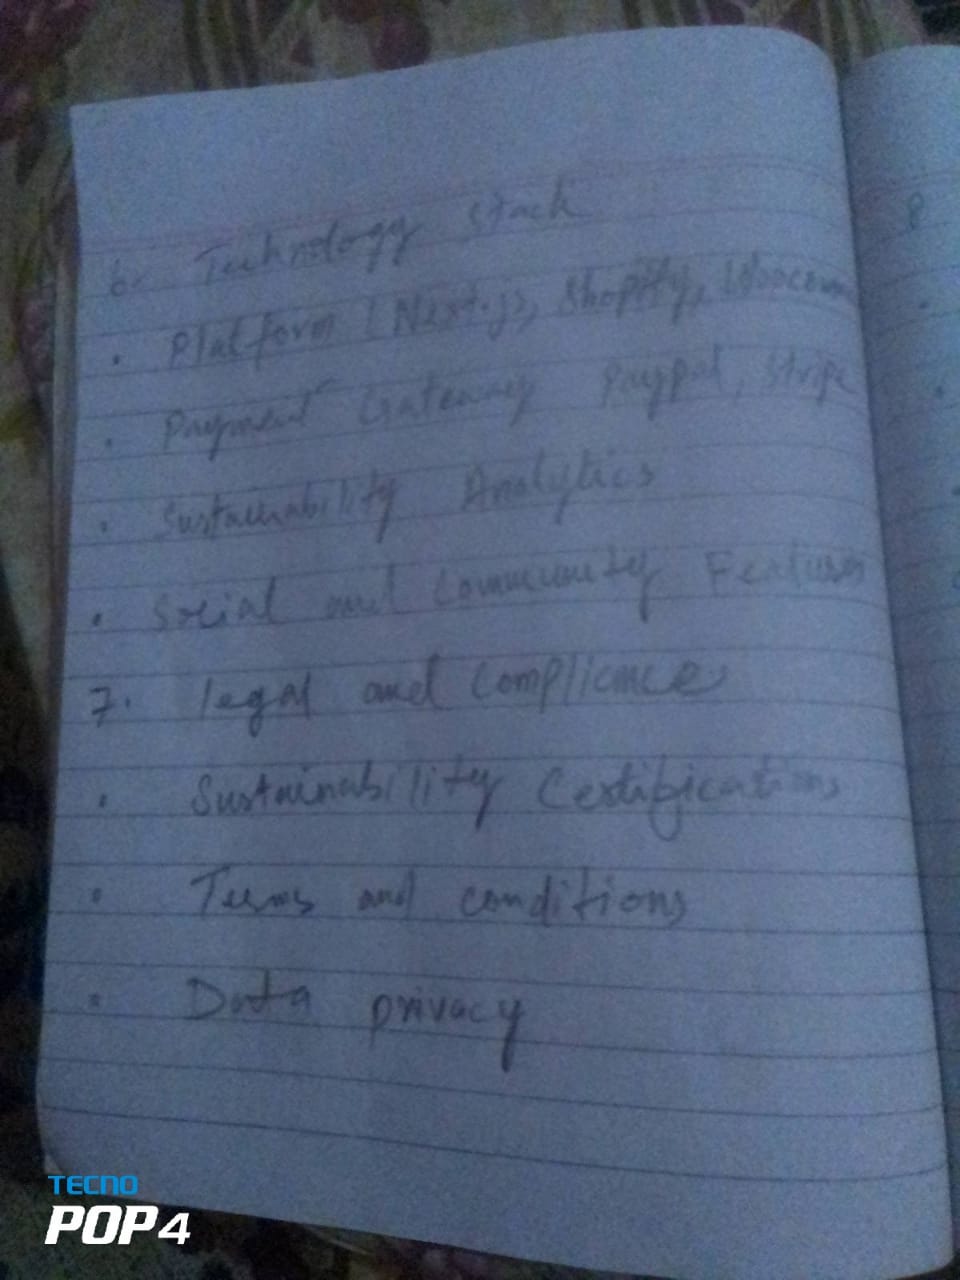 6. Technology Stack
• Platform (Next.js, Shopify,
• Payment Gateway Paypal, Stripe
• Sustainability Analytics
• Social and Community Features
7. legal and Complience
• Sustainability Certifications
• Terms and conditions
• Data privacy
8
TECNO
POP4